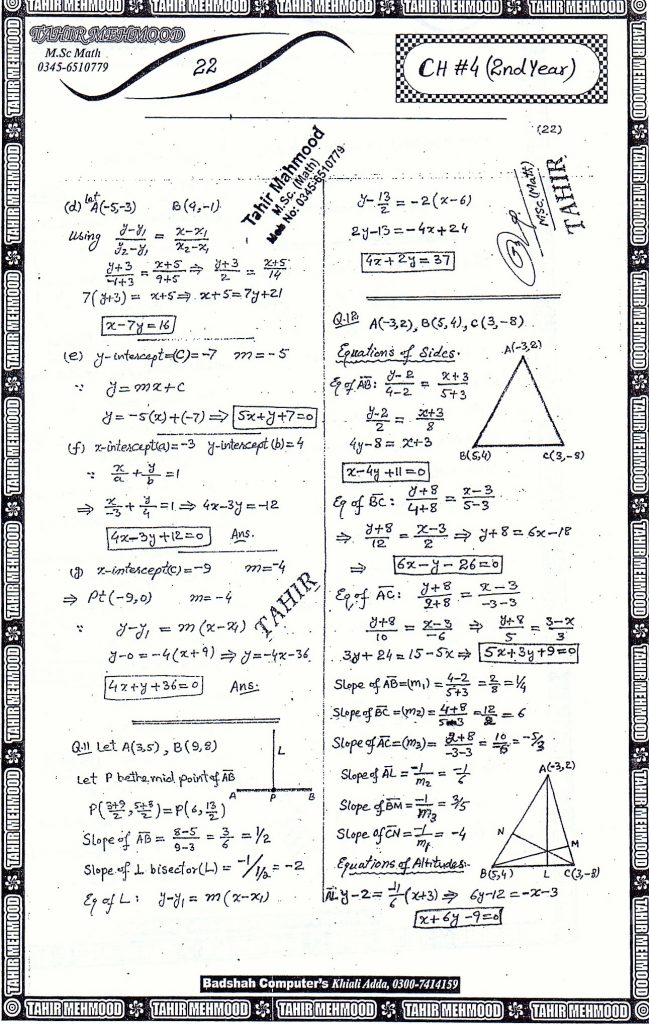 TAHIR MEHMOOD
M.Sc Math
0345-6510779
22
CH #4 (2nd Year)
(22)
Tahir Mahmood
M.Sc. (Math)
Mob No: 0345-6510779
MSC.(Math)
TAHIR
(d) let A(-5,-3) B(9,-1)
Using (y-y₁)/(y₂-y₁) = (x-x₁)/(x₂-x₁)
(y+3)/(-1+3) = (x+5)/(9+5) ⇒ (y+3)/2 = (x+5)/14
7(y+3) = x+5 ⇒ x+5 = 7y+21
x-7y=16
(e) y-intercept=(C)=-7 m=-5
∵ y=mx+c
y=-5(x)+(-7) ⇒ 5x+y+7=0
(f) x-intercept(a)=-3 y-intercept(b)=4
∵ x/a + y/b = 1
⇒ x/-3 + y/4 = 1 ⇒ 4x-3y=-12
4x-3y+12=0 Ans.
(g) x-intercept(c)=-9 m=-4
⇒ Pt(-9,0) m=-4
∵ y-y₁ = m(x-x₁)
y-0=-4(x+9) ⇒ y=-4x-36
4x+y+36=0 Ans.
TAHIR
Q.11 Let A(3,5), B(9,8)
Let P be the mid point of AB
L
A P B
P((3+9)/2, (5+8)/2) = P(6, 13/2)
Slope of AB = (8-5)/(9-3) = 3/6 = 1/2
Slope of ⊥ bisector(L) = -1/(1/2) = -2
Eq of L: y-y₁ = m(x-x₁)
y-13/2 = -2(x-6)
2y-13=-4x+24
4x+2y=37
Q.12 A(-3,2), B(5,4), C(3,-8)
Equations of Sides.
A(-3,2)
B(5,4) C(3,-8)
Eq of AB: (y-2)/(4-2) = (x+3)/(5+3)
(y-2)/2 = (x+3)/8
4y-8 = x+3
x-4y+11=0
Eq of BC: (y+8)/(4+8) = (x-3)/(5-3)
⇒ (y+8)/12 = (x-3)/2 ⇒ y+8=6x-18
⇒ 6x-y-26=0
Eq of AC: (y+8)/(2+8) = (x-3)/(-3-3)
(y+8)/10 = (x-3)/-6 ⇒ (y+8)/5 = (3-x)/3
3y+24=15-5x ⇒ 5x+3y+9=0
Slope of AB=(m₁) = (4-2)/(5+3) = 2/8 = 1/4
Slope of BC=(m₂) = (4+8)/(5-3) = 12/2 = 6
Slope of AC=(m₃) = (2+8)/(-3-3) = 10/-6 = -5/3
Slope of AL = -1/m₂ = -1/6
Slope of BM = -1/m₃ = 3/5
Slope of CN = -1/m₁ = -4
A(-3,2)
N M
B(5,4) L C(3,-8)
Equations of Altitudes:
AL y-2 = -1/6(x+3) ⇒ 6y-12=-x-3
x+6y-9=0
Badshah Computer's Khiali Adda, 0300-7414159
TAHIR MEHMOOD TAHIR MEHMOOD TAHIR MEHMOOD TAHIR MEHMOOD TAHIR MEHMOOD